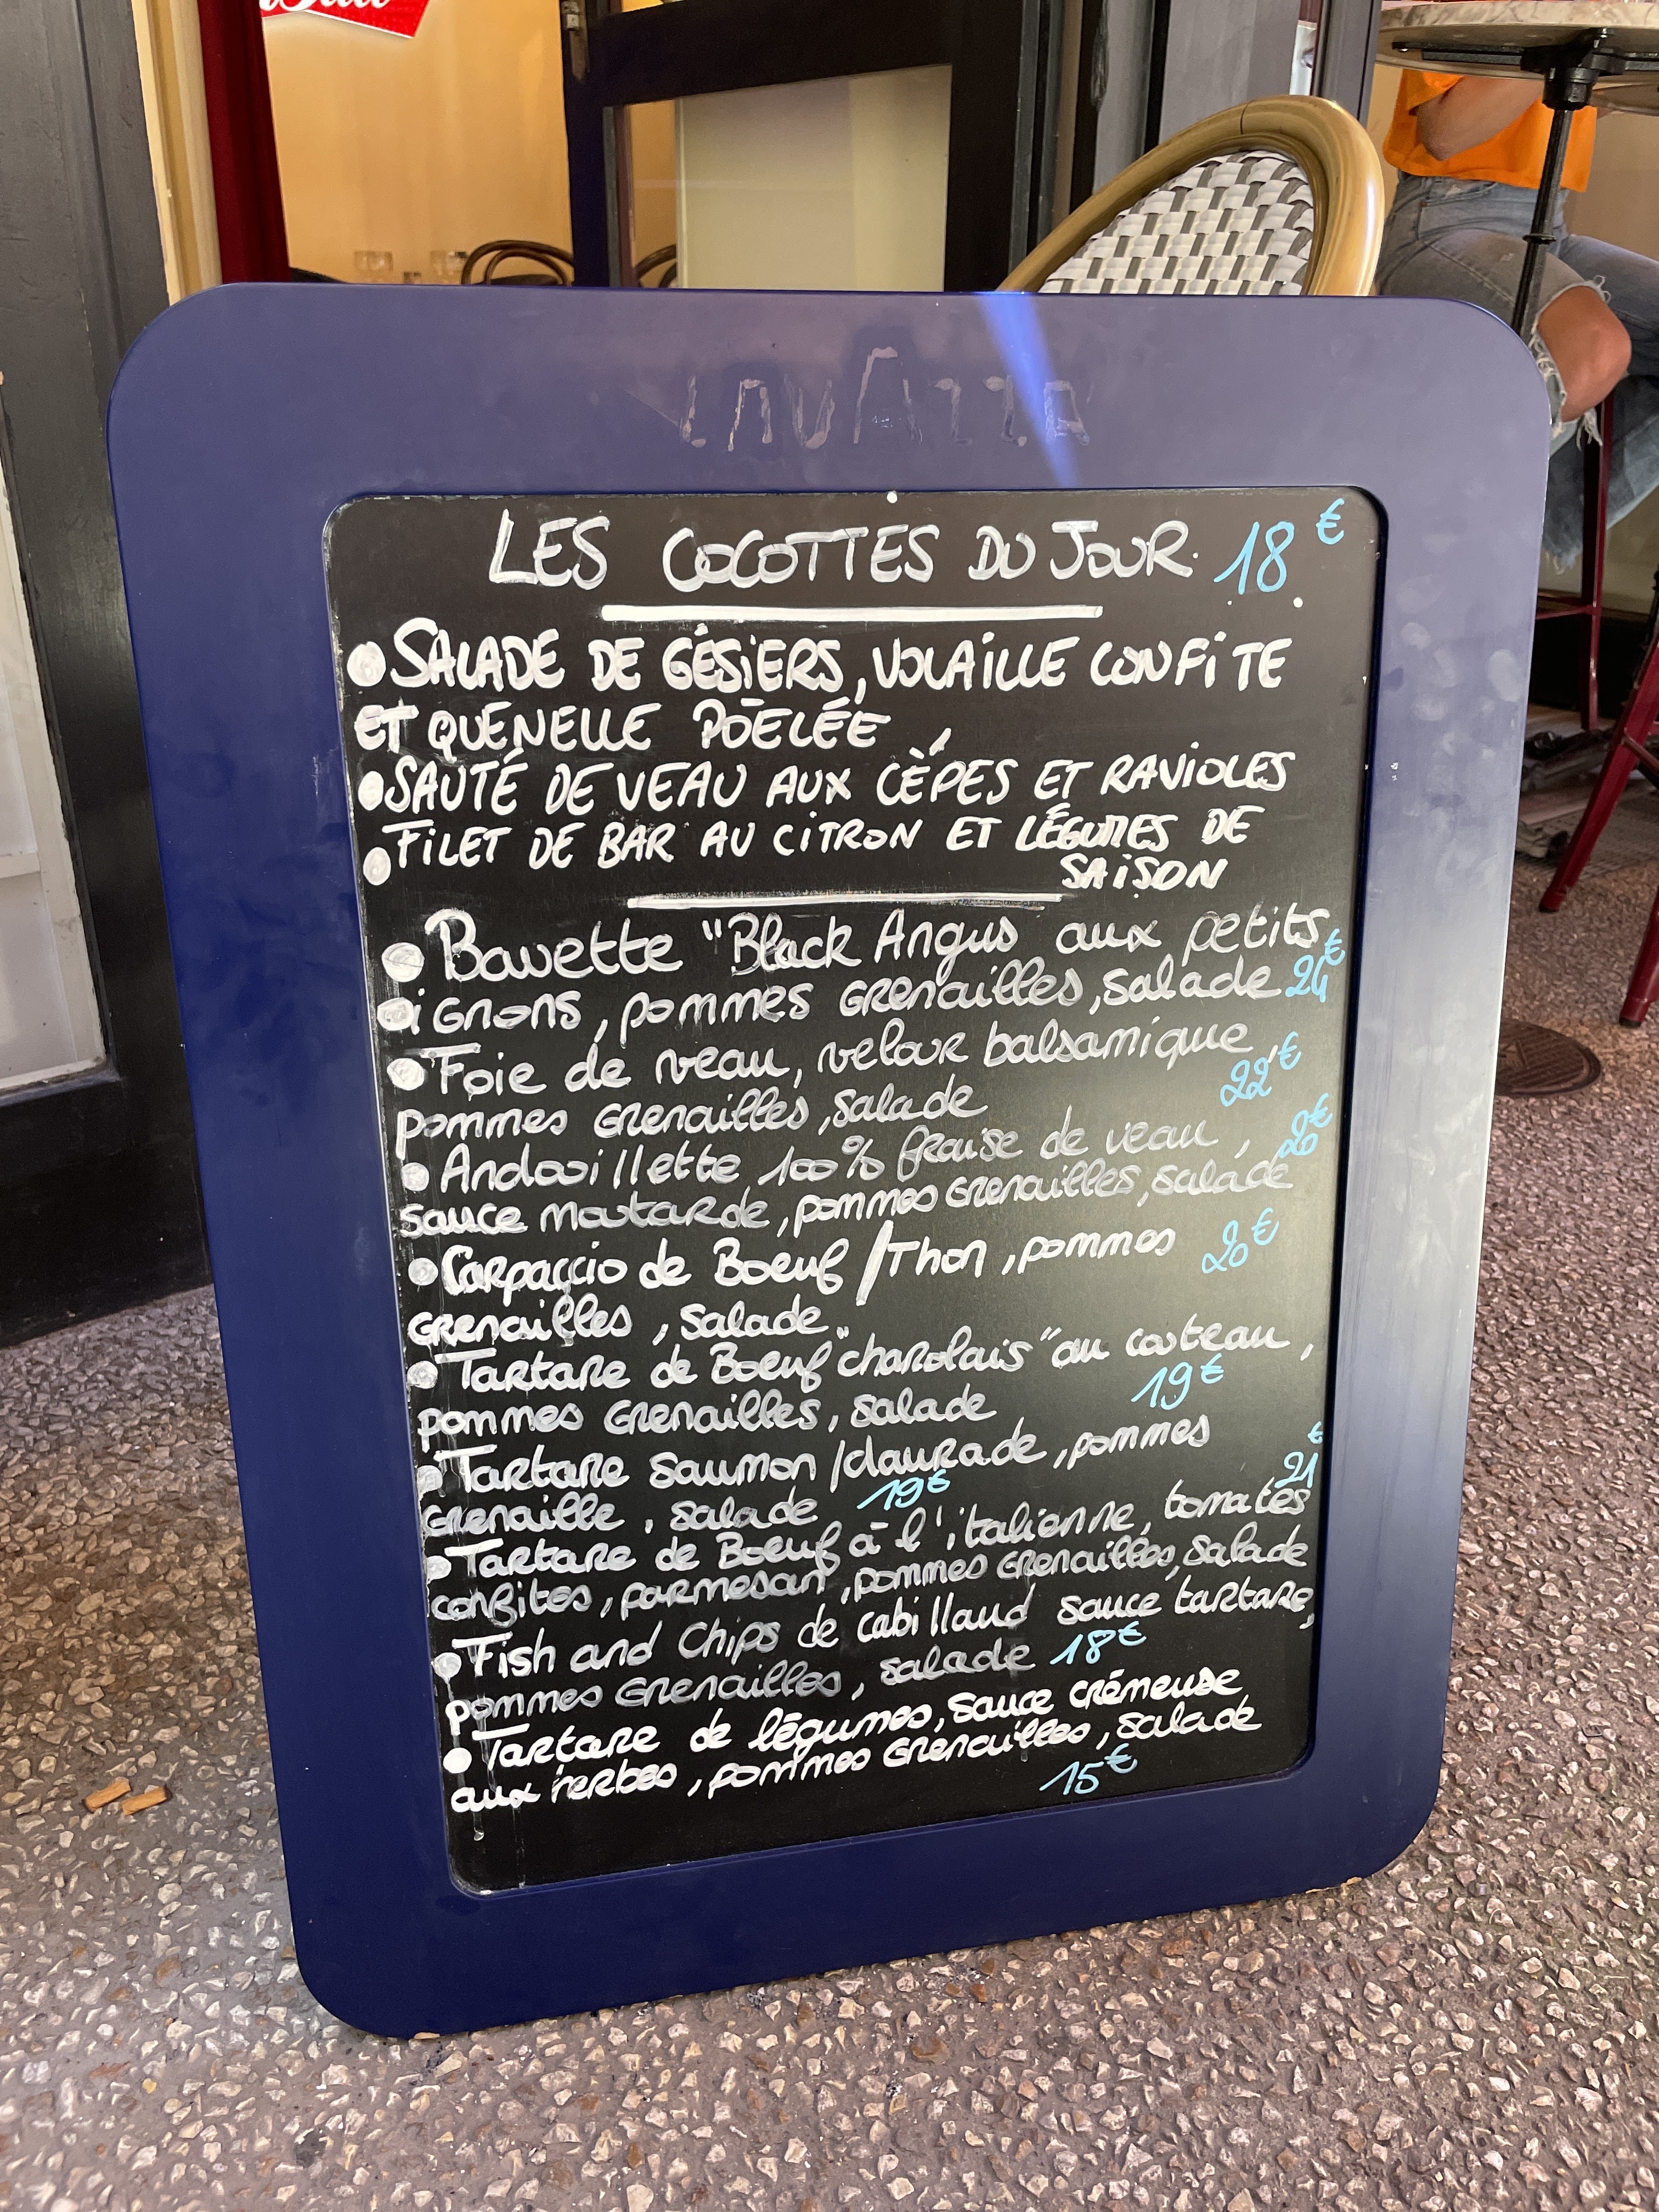 LAVAZZA
LES COCOTTES DU JOUR. 18€
• SALADE DE GÉSIERS, VOLAILLE CONFITE
ET QUENELLE POÊLÉE,
• SAUTÉ DE VEAU AUX CÈPES ET RAVIOLES
• FILET DE BAR AU CITRON ET LÉGUMES DE
SAISON
• Bavette "Black Angus aux petits
oignons, pommes Grenailles, salade 24€
• Foie de veau, velour balsamique,
pommes Grenailles, salade 22€
• Andouillette 100% fraise de veau, 20€
sauce moutarde, pommes Grenailles, salade
• Carpaccio de Boeuf / Thon, pommes 20€
Grenailles, salade
• Tartare de Boeuf "charolais" au couteau,
pommes Grenailles, salade 19€
• Tartare saumon / daurade, pommes
Grenaille, salade 19€ 21€
• Tartare de Boeuf à l'italienne, tomates
confites, parmesan, pommes Grenailles, salade
• Fish and Chips de cabillaud sauce tartare,
pommes Grenailles, salade 18€
• Tartare de légumes, sauce crémeuse
aux herbes, pommes Grenailles, salade
15€